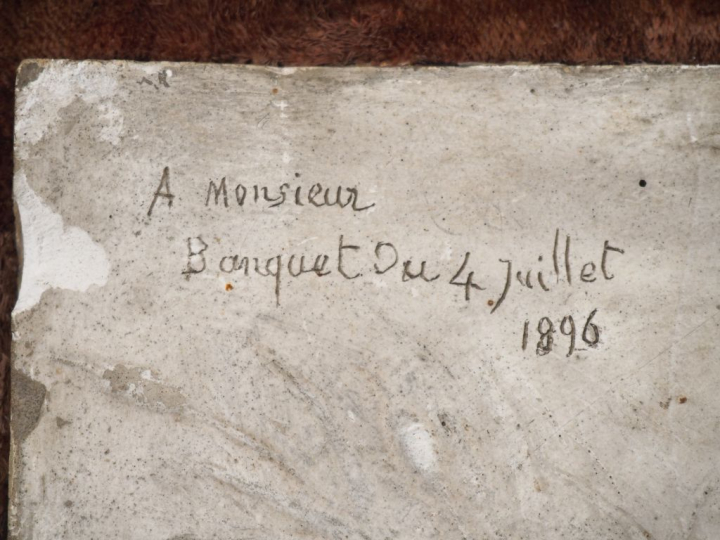 A Monsieur
Banquet Du 4 Juillet
1896